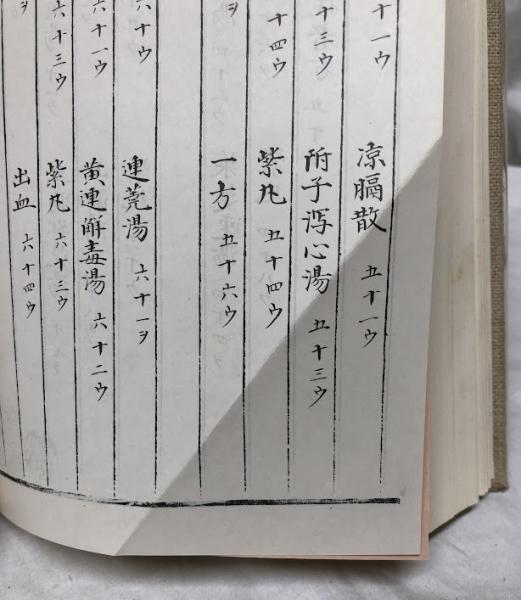 十一ウ
凉膈散 五十一ウ
十三ウ
附子瀉心湯 五十三ウ
十四ウ
紫丸 五十四ウ
ヲ
一方 五十六ウ
六十ウ
連莞湯 六十一ヲ
六十一ウ
黄連解毒湯 六十二ウ
六十三ウ
紫丸 六十三ウ
出血 六十四ウ